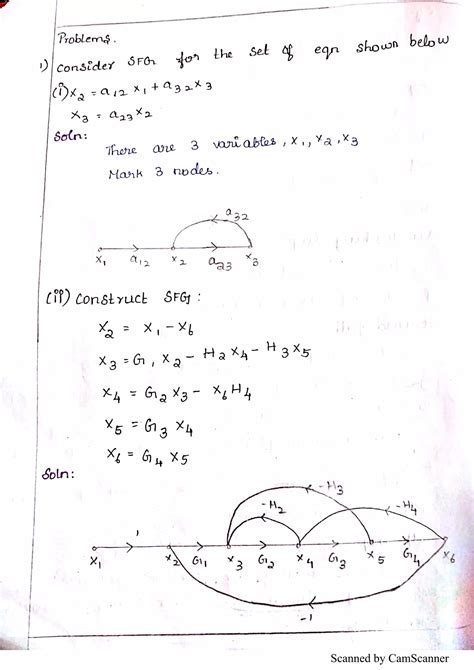 Problems.
1) Consider SFG for the set of eqn shown below
(i) x₂ = a₁₂ x₁ + a₃₂ x₃
x₃ = a₂₃ x₂
Soln:
There are 3 variables, x₁, x₂, x₃
Mark 3 nodes.
a₃₂
x₁ a₁₂ x₂ a₂₃ x₃
(ii) Construct SFG:
x₂ = x₁ - x₆
x₃ = G₁ x₂ - H₂ x₄ - H₃ x₅
x₄ = G₂ x₃ - x₆ H₄
x₅ = G₃ x₄
x₆ = G₄ x₅
Soln:
-H₃
-H₂ -H₄
1
x₁ x₂ G₁ x₃ G₂ x₄ G₃ x₅ G₄ x₆
-1
Scanned by CamScanner